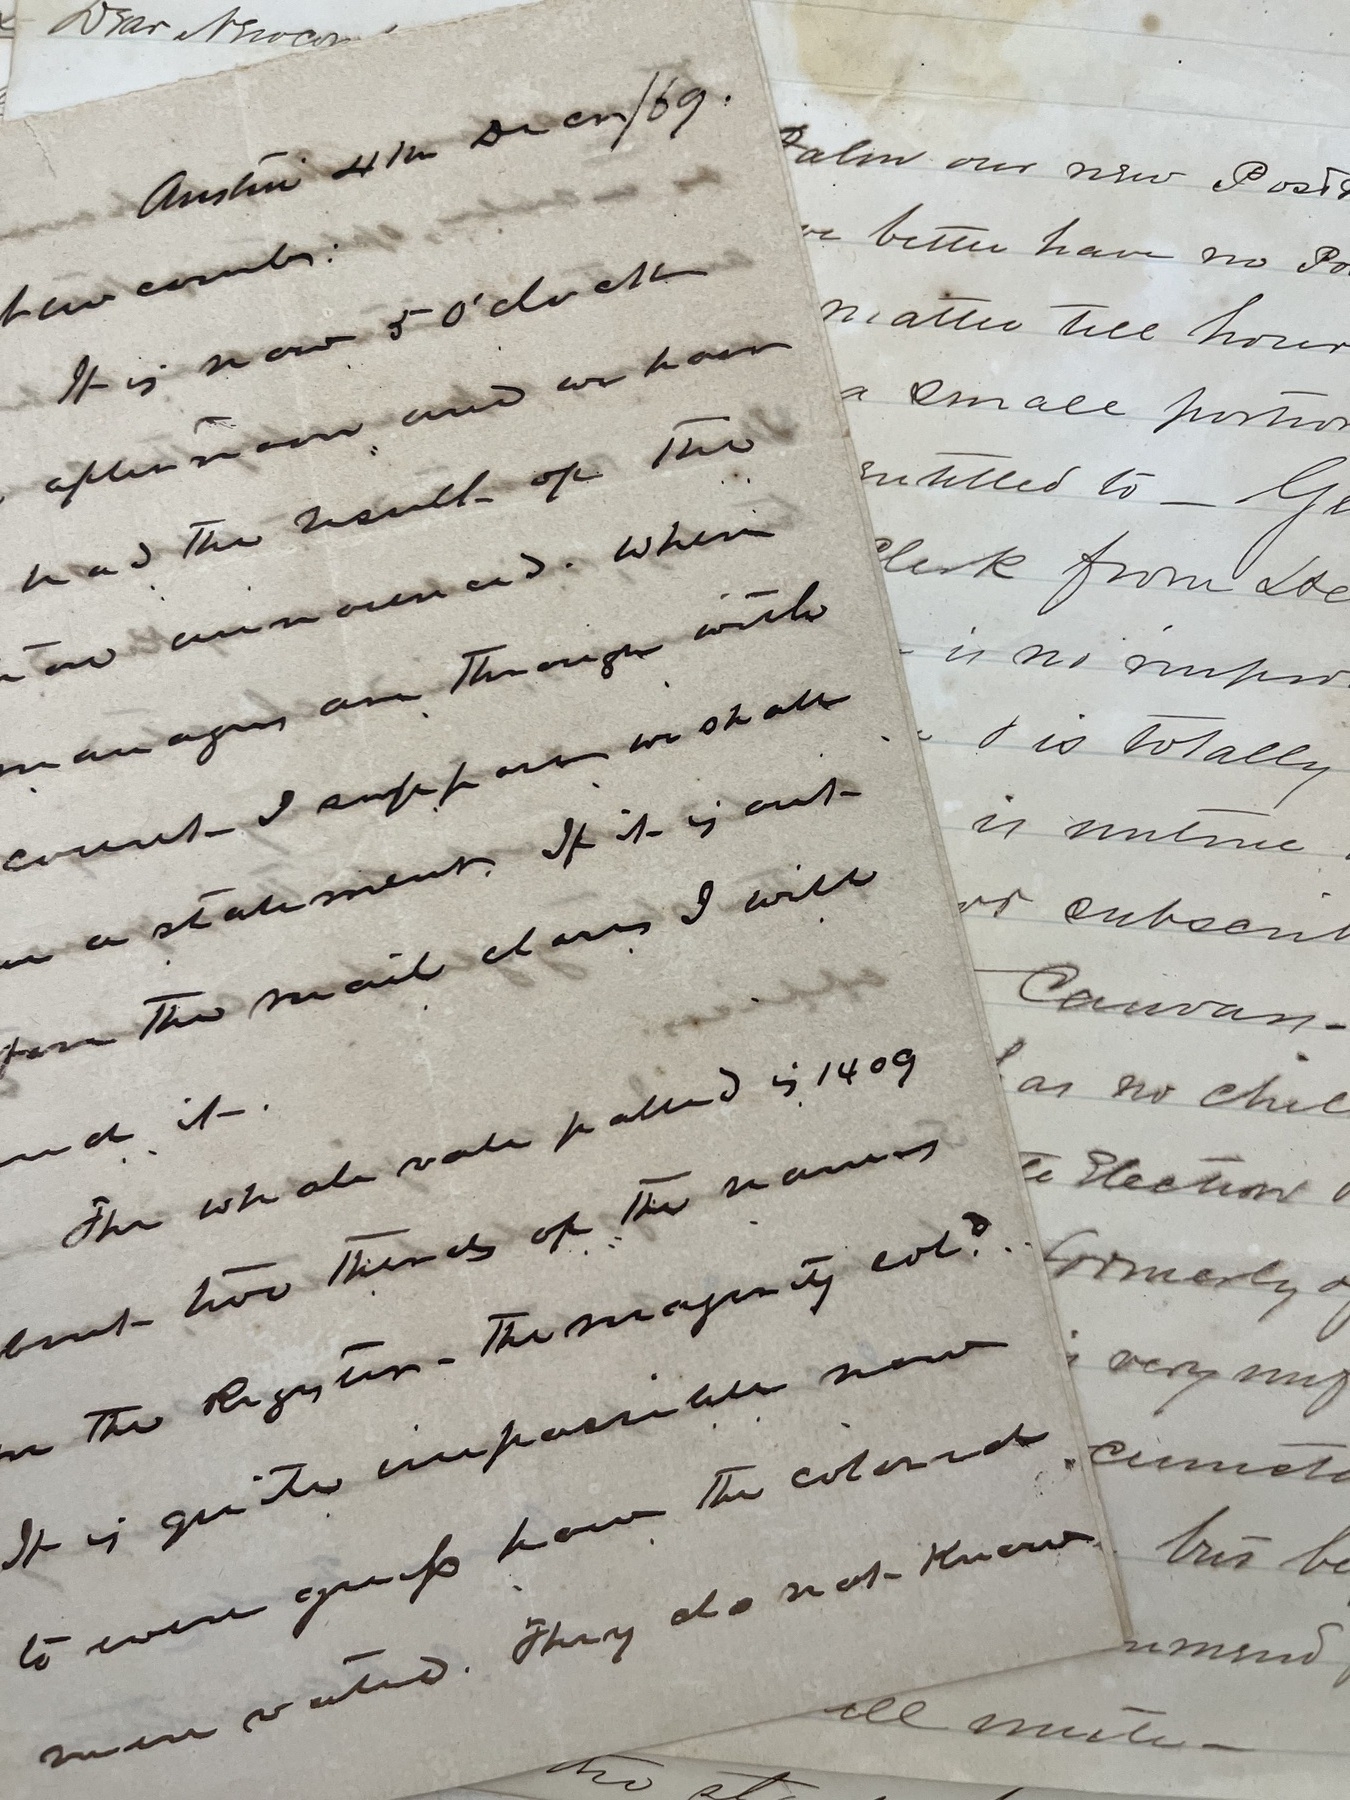 Dear Newcom
Austin 4th Decem/69.
Newcomb:
It is now 5 O'clock
afternoon and we have
had the result of the
announced. When
managers are through with
count I suppose we shall
a statement. If it is out
the mail closes I will
it.
The whole vote polled is 1409
about two thirds of the names
on the Register - the majority col?
It is quite impossible now
to even guess how the colored
men voted. They do not know
Palm our new Post
better have no Po
matter till hour
a small portion
entitled to - Ge
Clerk from
is no impro
is totally
is untrue
subscrib
Canvass-
has no chil
Election
formerly of
is very
but be
ill write -